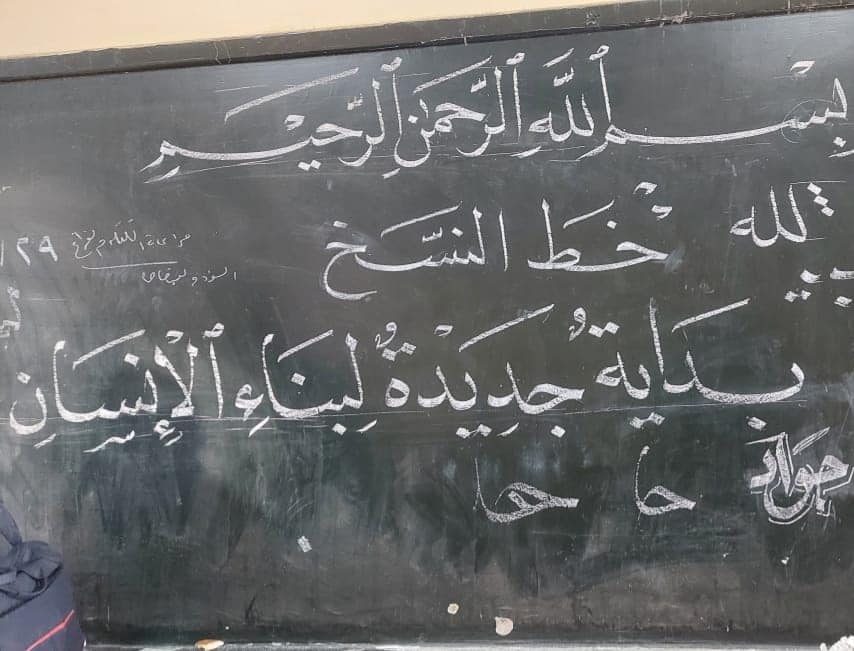 بِسْمِ اللَّهِ الرَّحْمَٰنِ الرَّحِيمِ
لله
خَط النسَّخ
١٢٩
بـدَاية جَدِيَدةٌ لِبنَاءِ الْإِنسَانِ
حا
ها